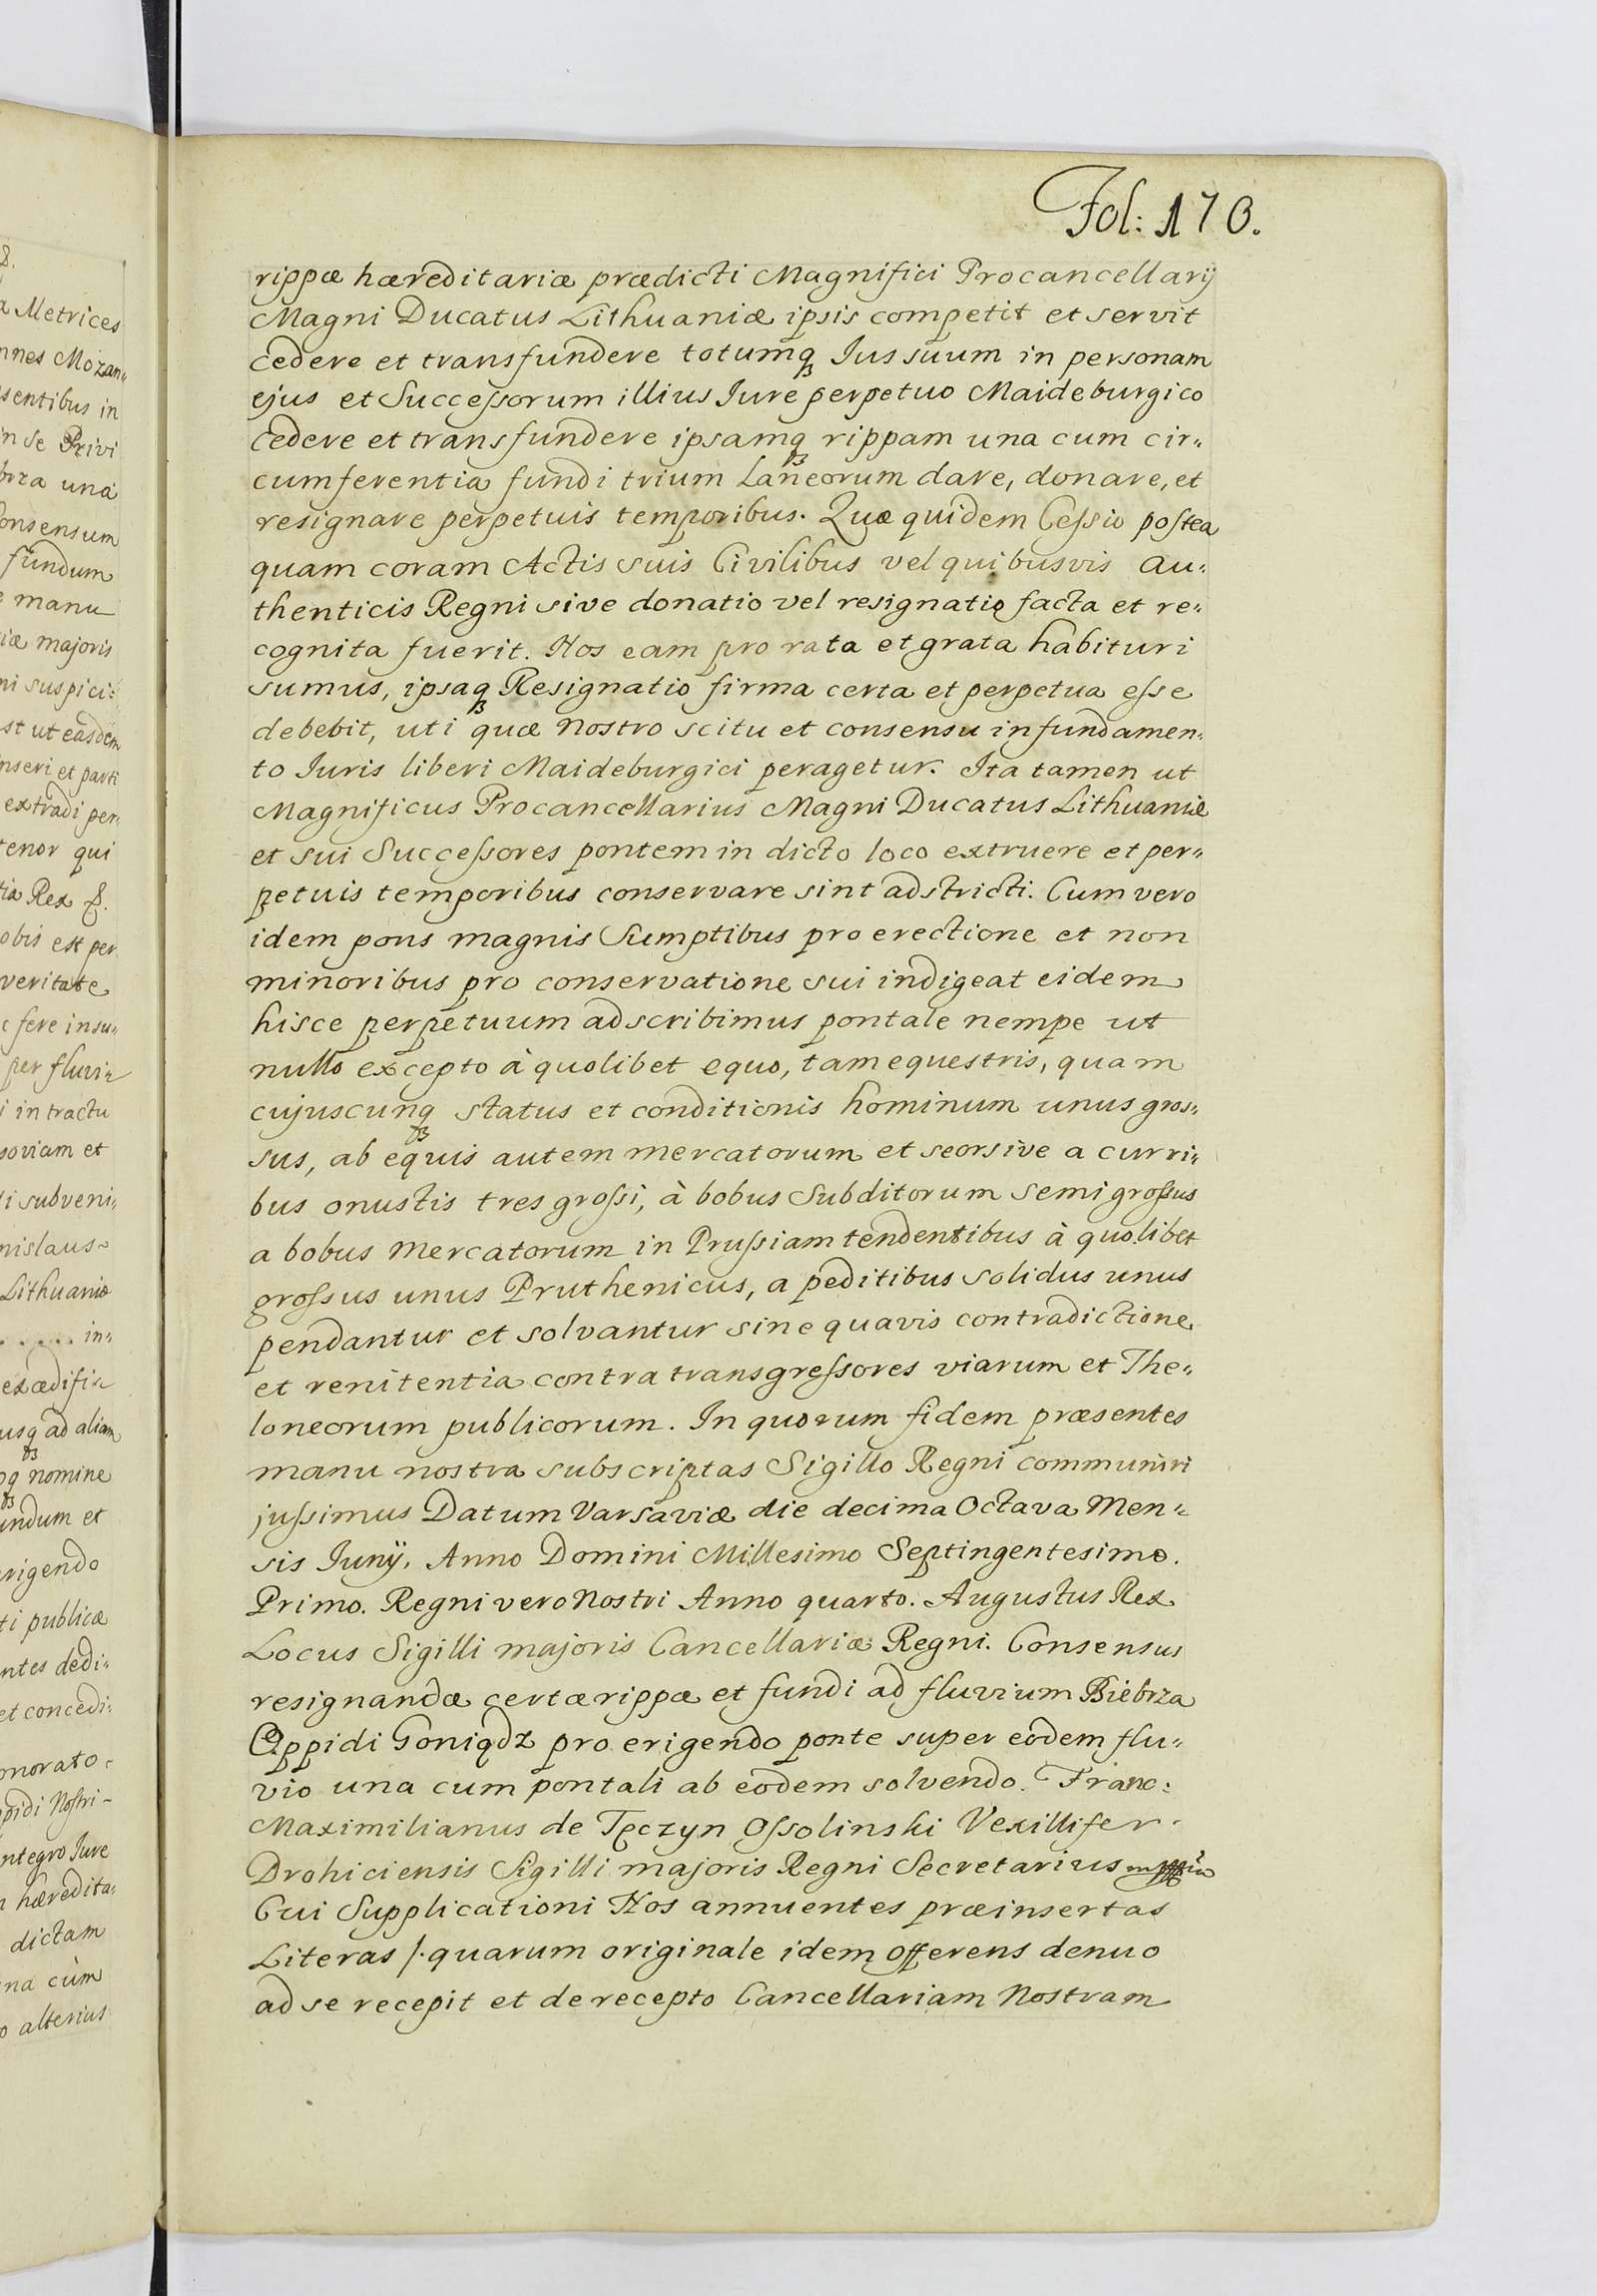 Fol: 170.
rippæ hæreditariæ prædicti Magnifici Procancellarij
Magni Ducatus Lithuaniæ ipsis competit et servit
cedere et transfundere totumqꝫ Jus suum in personam
ejus et Successorum illius Jure perpetuo Maideburgico
cedere et transfundere ipsamqꝫ rippam una cum cir„
cumferentia fundi trium Laneorum dare, donare, et
resignare perpetuis temporibus. Quæ quidem Cessio postea
quam coram Actis suis Civilibus vel quibusvis Au„
thenticis Regni sive donatio vel resignatio facta et re„
cognita fuerit. Nos eam pro rata et grata habituri
sumus, ipsaqꝫ Resignatio firma certa et perpetua esse
debebit, uti quæ Nostro scitu et consensu in fundamen„
to Juris liberi Maideburgici peragetur. Ita tamen ut
Magnificus Procancellarius Magni Ducatus Lithuaniæ
et sui Successores pontem in dicto loco extruere et per„
petuis temporibus conservare sint adstricti. Cum vero
idem pons magnis Sumptibus pro erectione et non
minoribus pro conservatione sui indigeat eidem
hisce perpetuum adscribimus pontale nempe ut
nullo excepto à quolibet equo, tam equestris, quam
cujuscunqꝫ status et conditionis hominum unus gros„
sus, ab equis autem mercatorum et seorsive a curri„
bus onustis tres grossi, à bobus Subditorum semigrossus
a bobus Mercatorum in Prussiam tendentibus à quolibet
grossus unus Pruthenicus, a peditibus solidus unus
pendantur et solvantur sine quavis contradictione
et renitentia contra transgressores viarum et The„
loneorum publicorum. In quorum fidem præsentes
manu nostra subscriptas Sigillo Regni communiri
jussimus Datum Varsaviæ die decima Octava Men„
sis Junÿ, Anno Domini Millesimo Septingentesimo.
Primo. Regni vero Nostri Anno quarto. Augustus Rex
Locus Sigilli majoris Cancellariæ Regni. Consensus
resignandæ certæ rippæ et fundi ad fluvium Biebrza
Oppidi Goniądz pro erigendo ponte super eodem flu„
vio una cum pontali ab eodem solvendo. Franc:
Maximilianus de Tęczyn Ossolinski Vexillifer
Drohiciensis Sigilli majoris Regni Secretarius
Cui Supplicationi Nos annuentes præinsertas
Literas /. quarum originale idem Offerens denuo
ad se recepit et de recepto Cancellariam Nostram